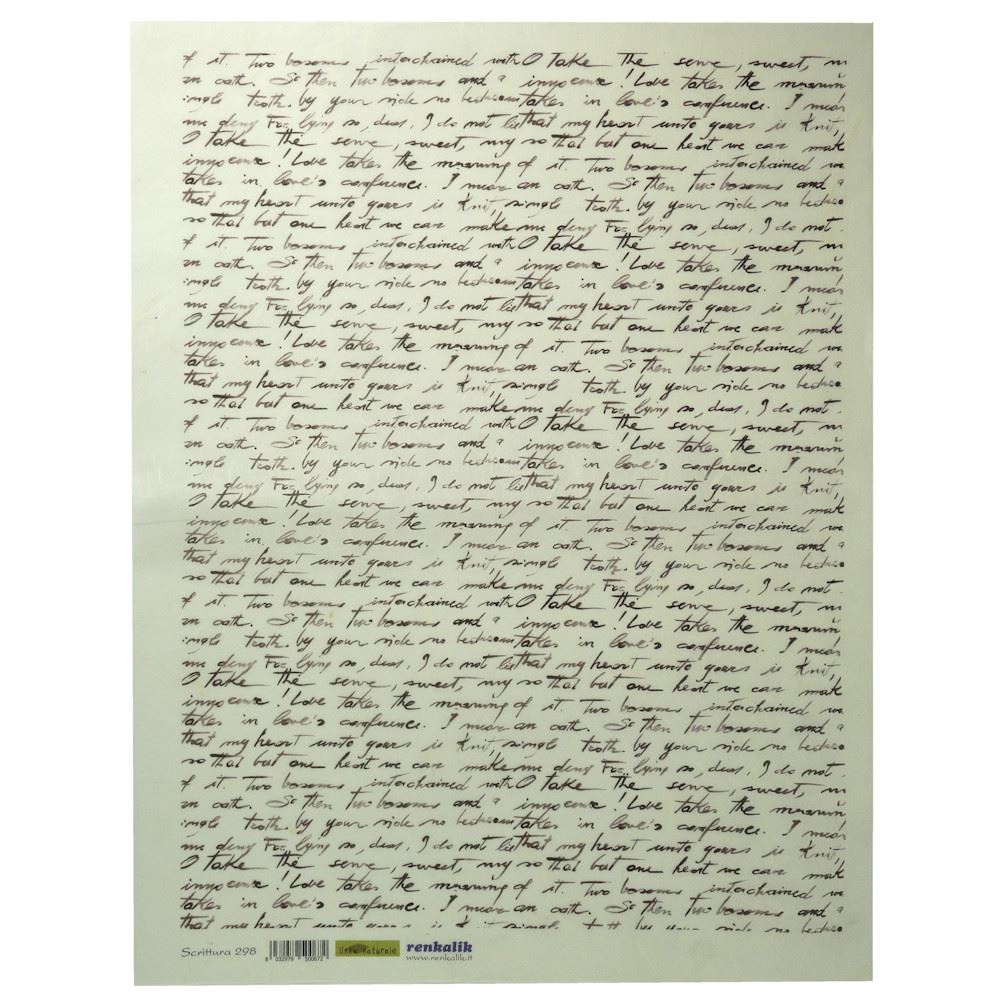 f it. Two bosoms interchained with O take the serve, sweet, m
an oath. So then two bosoms and a innocence! Love takes the meaning
ingle troth. by your side no bedroom takes in love's conference. I mean
me deny For lying so, dear, I do not lie that my heart unto yours is knit,
O take the serve, sweet, my so that but one heart we can make
innocence! Love takes the meaning of it. Two bosoms interchained
takes in love's conference. I mean an oath. So then two bosoms and a
that my heart unto yours is knit, single troth. by your side no bedroo
so that but one heart we can make me deny For lying so, dear, I do not.
f it. Two bosoms interchained with O take the serve, sweet, m
an oath. So then two bosoms and a innocence! Love takes the meaning
ingle troth. by your side no bedroom takes in love's conference. I mean
me deny For lying so, dear, I do not lie that my heart unto yours is knit,
O take the serve, sweet, my so that but one heart we can make
innocence! Love takes the meaning of it. Two bosoms interchained
takes in love's conference. I mean an oath. So then two bosoms and a
that my heart unto yours is knit, single troth. by your side no bedroo
so that but one heart we can make me deny For lying so, dear, I do not.
f it. Two bosoms interchained with O take the serve, sweet, m
an oath. So then two bosoms and a innocence! Love takes the meaning
ingle troth. by your side no bedroom takes in love's conference. I mean
me deny For lying so, dear, I do not lie that my heart unto yours is knit,
O take the serve, sweet, my so that but one heart we can make
innocence! Love takes the meaning of it. Two bosoms interchained
takes in love's conference. I mean an oath. So then two bosoms and a
that my heart unto yours is knit, single troth. by your side no bedroo
so that but one heart we can make me deny For lying so, dear, I do not.
f it. Two bosoms interchained with O take the serve, sweet, m
an oath. So then two bosoms and a innocence! Love takes the meaning
ingle troth. by your side no bedroom takes in love's conference. I mean
me deny For lying so, dear, I do not lie that my heart unto yours is knit,
O take the serve, sweet, my so that but one heart we can make
innocence! Love takes the meaning of it. Two bosoms interchained
takes in love's conference. I mean an oath. So then two bosoms and a
that my heart unto yours is knit, single troth. by your side no bedroo
so that but one heart we can make me deny For lying so, dear, I do not.
f it. Two bosoms interchained with O take the serve, sweet, m
an oath. So then two bosoms and a innocence! Love takes the meaning
ingle troth. by your side no bedroom takes in love's conference. I mean
me deny For lying so, dear, I do not lie that my heart unto yours is knit,
O take the serve, sweet, my so that but one heart we can make
innocence! Love takes the meaning of it. Two bosoms interchained
takes in love's conference. I mean an oath. So then two bosoms and a
that my heart unto single by your side no
Scrittura 298 8 032979 500672 Naturale renkalik
www.renkalik.it